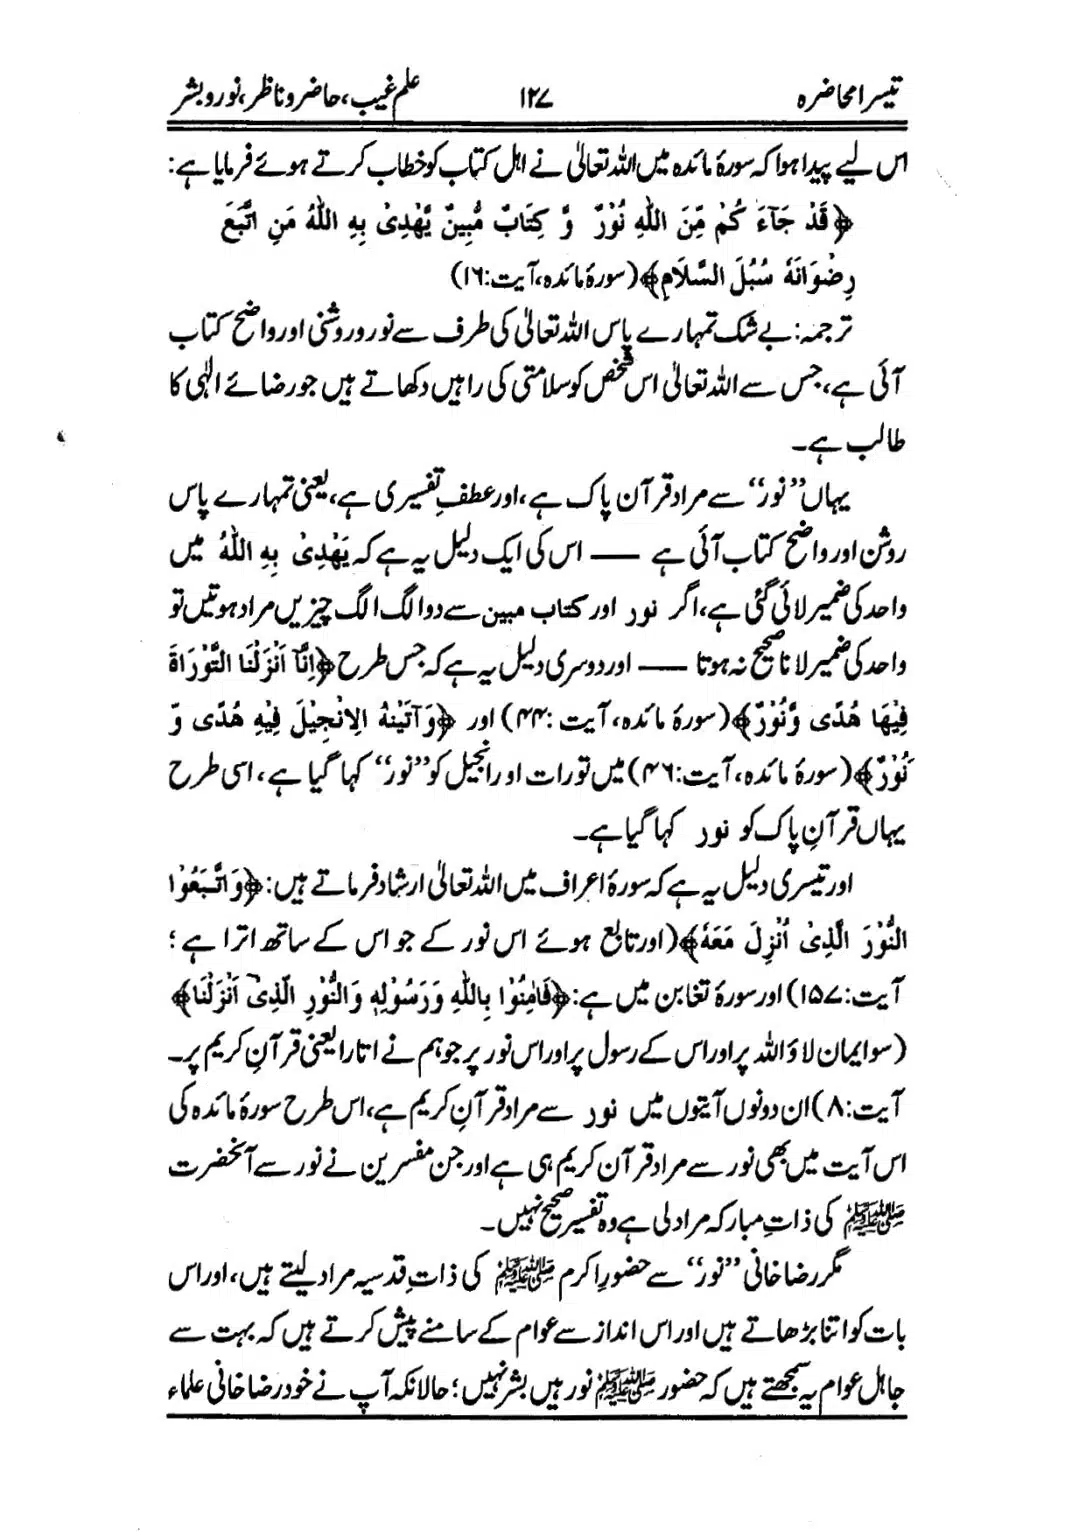 تیسرا محاضرہ ۱۲۷ علم غیب، حاضر و ناظر، نور و بشر
اس لیے پیدا ہوا کہ سورۂ مائدہ میں اللہ تعالیٰ نے اہل کتاب کو خطاب کرتے ہوئے فرمایا ہے:
﴿قَدْ جَآءَ كُمْ مِّنَ اللّٰهِ نُوْرٌ وَّ كِتَابٌ مُّبِينٌ يَّهْدِىْ بِهِ اللّٰهُ مَنِ اتَّبَعَ
رِضْوَانَهٗ سُبُلَ السَّلَامِ﴾(سورۂ مائدہ، آیت:۱۶)
ترجمہ: بے شک تمہارے پاس اللہ تعالیٰ کی طرف سے نور و روشنی اور واضح کتاب
آئی ہے، جس سے اللہ تعالیٰ اس شخص کو سلامتی کی راہیں دکھاتے ہیں جو رضائے الٰہی کا
طالب ہے۔
یہاں ’’نور‘‘ سے مراد قرآن پاک ہے، اور عطفِ تفسیری ہے، یعنی تمہارے پاس
روشن اور واضح کتاب آئی ہے —— اس کی ایک دلیل یہ ہے کہ يَهْدِىْ بِهِ اللّٰهُ میں
واحد کی ضمیر لائی گئی ہے، اگر نور اور کتاب مبین سے دو الگ الگ چیزیں مراد ہوتیں تو
واحد کی ضمیر لانا صحیح نہ ہوتا —— اور دوسری دلیل یہ ہے کہ جس طرح ﴿اِنَّآ اَنْزَلْنَا التَّوْرَاةَ
فِيْهَا هُدًى وَّنُوْرٌ﴾(سورۂ مائدہ، آیت :۴۴) اور ﴿وَآتَيْنٰهُ الِانْجِيْلَ فِيْهِ هُدًى وَّ
نُوْرٌ﴾(سورۂ مائدہ، آیت:۴۶) میں تورات اور انجیل کو ’’نور‘‘ کہا گیا ہے، اسی طرح
یہاں قرآنِ پاک کو نور کہا گیا ہے۔
اور تیسری دلیل یہ ہے کہ سورۂ اعراف میں اللہ تعالیٰ ارشاد فرماتے ہیں: ﴿وَاتَّبَعُوْا
النُّوْرَ الَّذِىْ اُنْزِلَ مَعَهٗ﴾(اور تابع ہوئے اس نور کے جو اس کے ساتھ اترا ہے؛
آیت:۱۵۷) اور سورۂ تغابن میں ہے: ﴿فَاٰمِنُوْا بِاللّٰهِ وَرَسُوْلِهٖ وَالنُّوْرِ الَّذِىْٓ اَنْزَلْنَا﴾
(سو ایمان لاؤ اللہ پر اور اس کے رسول پر اور اس نور پر جو ہم نے اتارا یعنی قرآنِ کریم پر۔
آیت:۸) ان دونوں آیتوں میں نور سے مراد قرآنِ کریم ہے، اس طرح سورۂ مائدہ کی
اس آیت میں بھی نور سے مراد قرآن کریم ہی ہے اور جن مفسرین نے نور سے آنحضرت
ﷺ کی ذاتِ مبارکہ مراد لی ہے وہ تفسیر صحیح نہیں۔
مگر رضا خانی ’’نور‘‘ سے حضورِ اکرم ﷺ کی ذاتِ قدسیہ مراد لیتے ہیں، اور اس
بات کو اتنا بڑھاتے ہیں اور اس انداز سے عوام کے سامنے پیش کرتے ہیں کہ بہت سے
جاہل عوام یہ سمجھتے ہیں کہ حضور ﷺ نور ہیں بشر نہیں؛ حالانکہ آپ نے خود رضا خانی علماء